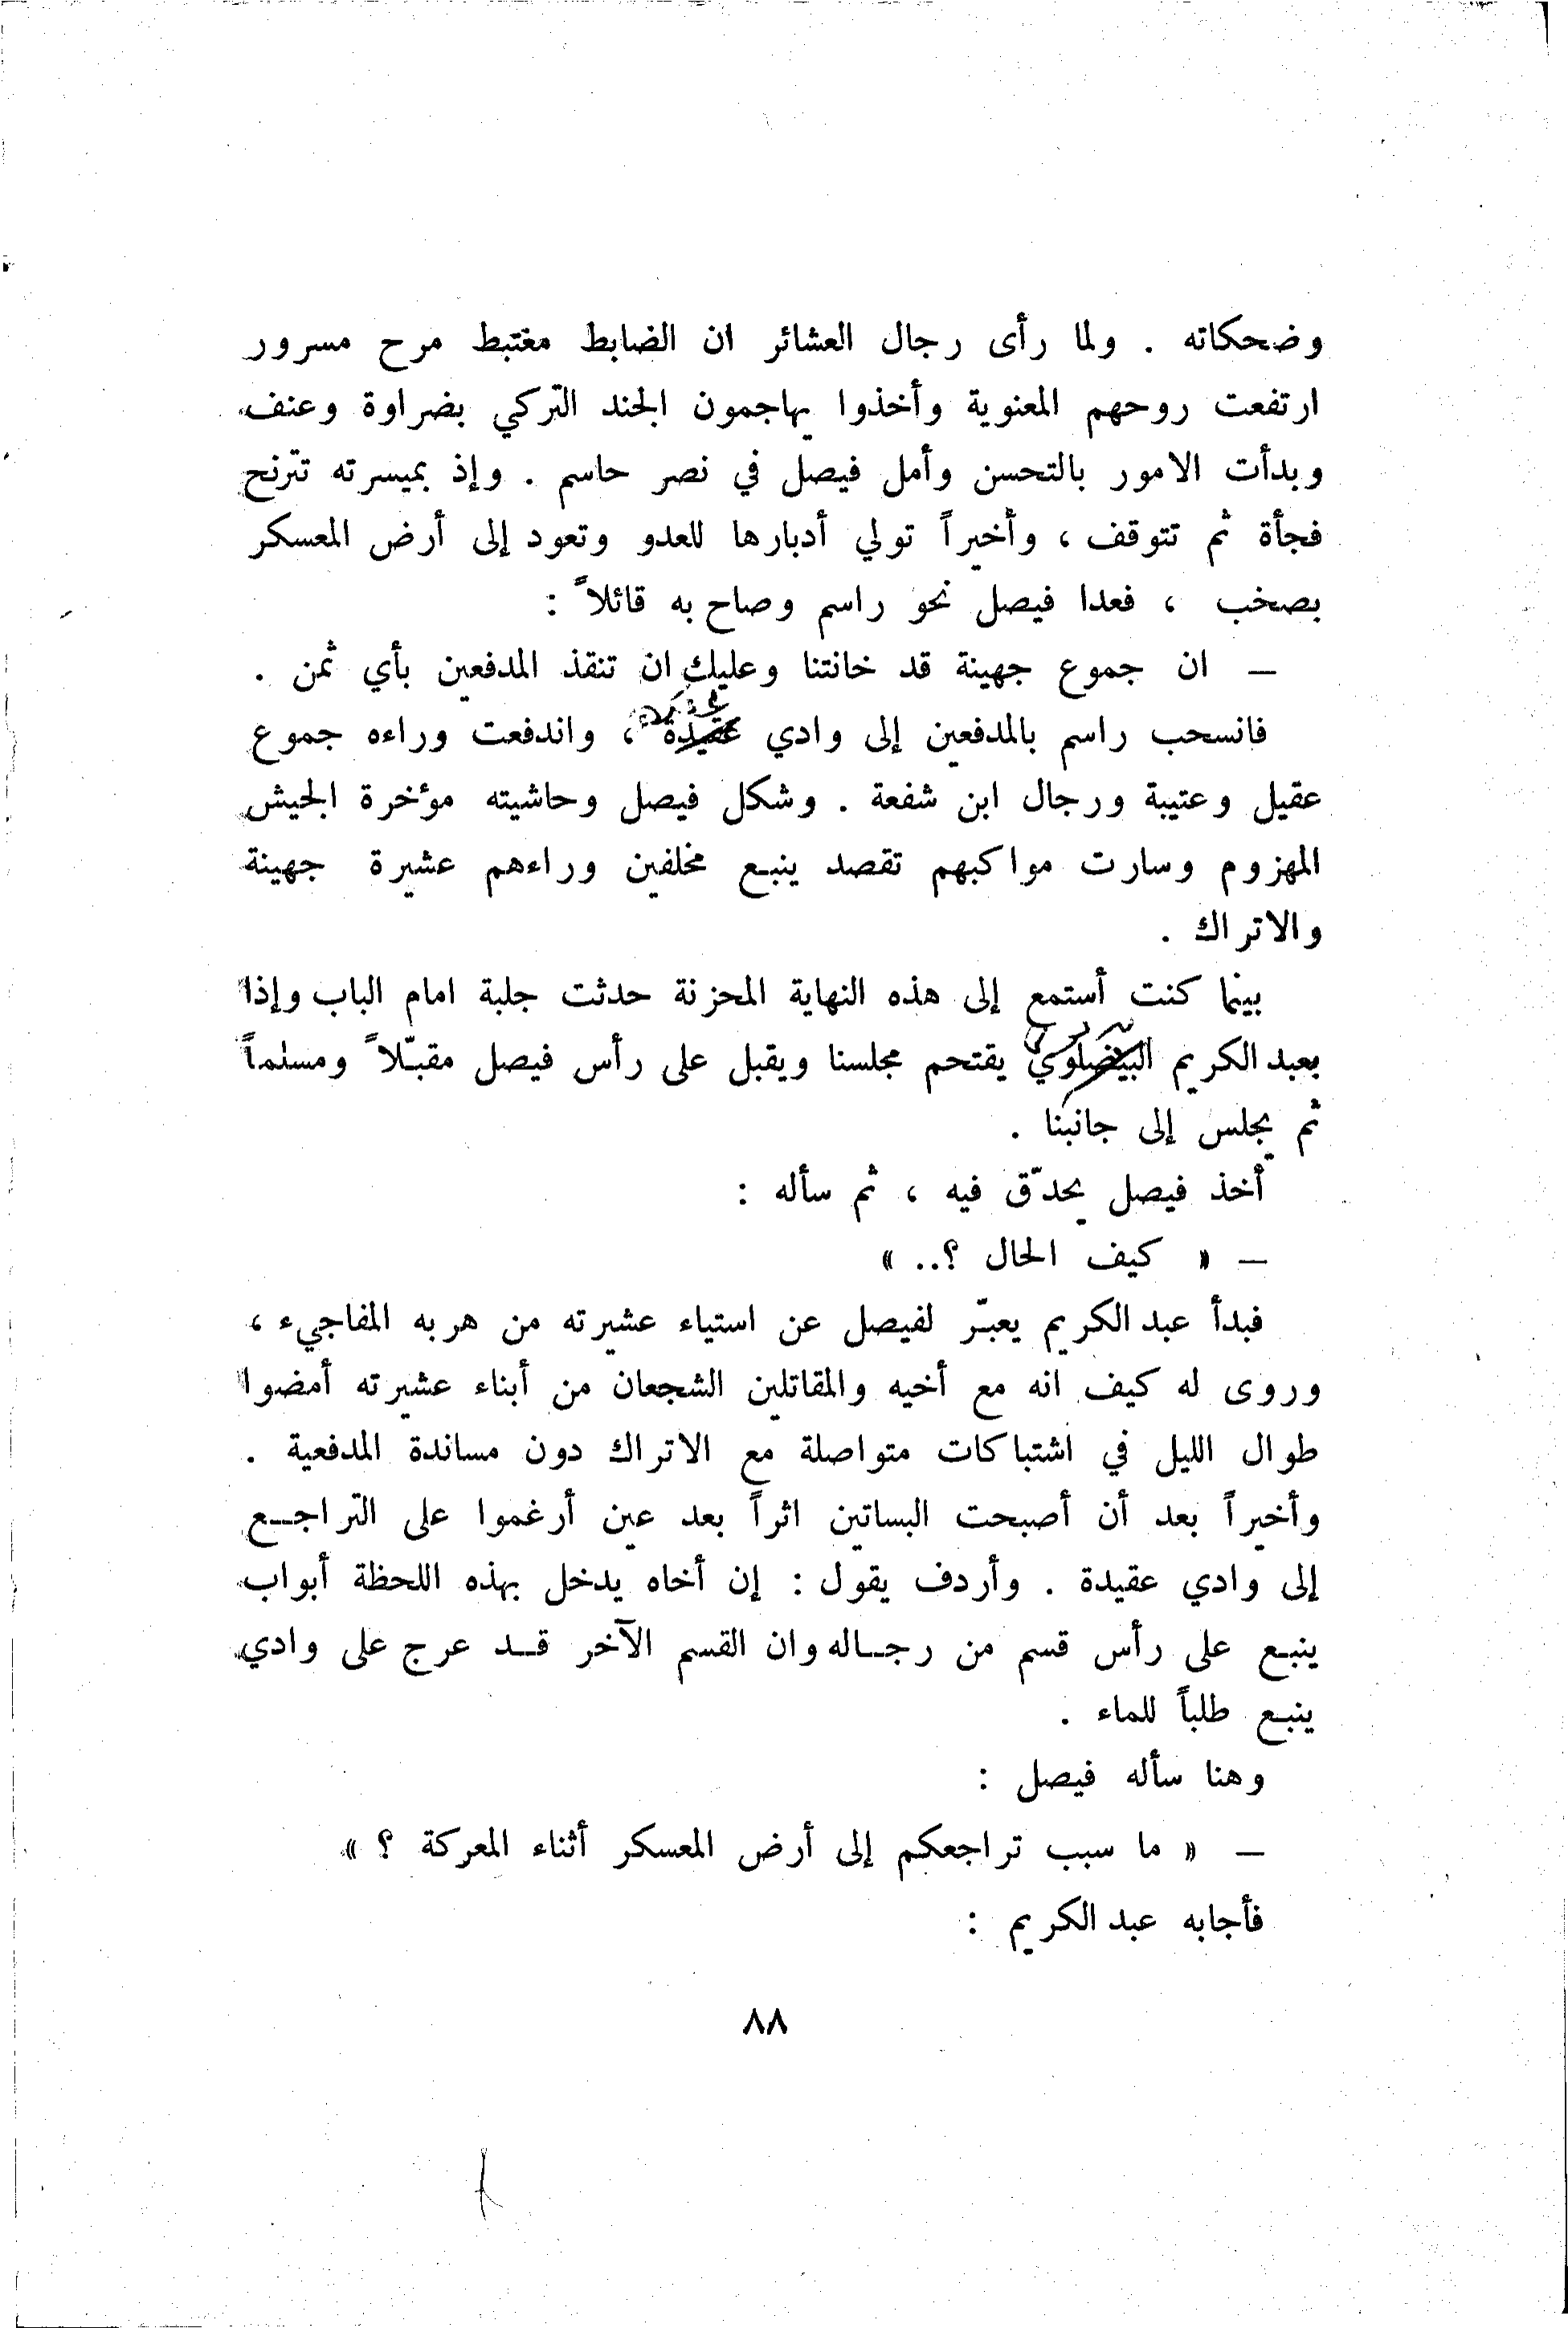 وضحكاته . ولما رأى رجال العشائر ان الضابط مغتبط مرح مسرور
ارتفعت روحهم المعنوية وأخذوا يهاجمون الجند التركي بضراوة وعنف
وبدأت الامور بالتحسن وأمل فيصل في نصر حاسم . وإذ بميسرته تترنح
فجأة ثم تتوقف ، وأخيراً تولي أدبارها للعدو وتعود إلى أرض المعسكر
بصخب ، فعدا فيصل نحو راسم وصاح به قائلاً :
— ان جموع جهينة قد خانتنا وعليك ان تنقذ المدفعين بأي ثمن .
فانسحب راسم بالمدفعين إلى وادي عقيدة ، واندفعت وراءه جموع
عقيل وعتيبة ورجال ابن شفعة . وشكل فيصل وحاشيته مؤخرة الجيش
المهزوم وسارت مواكبهم تقصد ينبع مخلفين وراءهم عشيرة جهينة
والاتراك .
بينما كنت أستمع إلى هذه النهاية المحزنة حدثت جلبة امام الباب وإذا
بعبد الكريم البيضلوي يقتحم مجلسنا ويقبل على رأس فيصل مقبّلاً ومسلماً
ثم يجلس إلى جانبنا .
أخذ فيصل يحدّق فيه ، ثم سأله :
— « كيف الحال ؟.. »
فبدأ عبد الكريم يعبّر لفيصل عن استياء عشيرته من هربه المفاجيء ،
وروى له كيف انه مع أخيه والمقاتلين الشجعان من أبناء عشيرته أمضوا
طوال الليل في اشتباكات متواصلة مع الاتراك دون مساندة المدفعية .
وأخيراً بعد أن أصبحت البساتين اثراً بعد عين أرغموا على التراجع
إلى وادي عقيدة . وأردف يقول : إن أخاه يدخل بهذه اللحظة أبواب
ينبع على رأس قسم من رجاله وان القسم الآخر قد عرج على وادي
ينبع طلباً للماء .
وهنا سأله فيصل :
— « ما سبب تراجعكم إلى أرض المعسكر أثناء المعركة ؟ »
فأجابه عبد الكريم :
٨٨